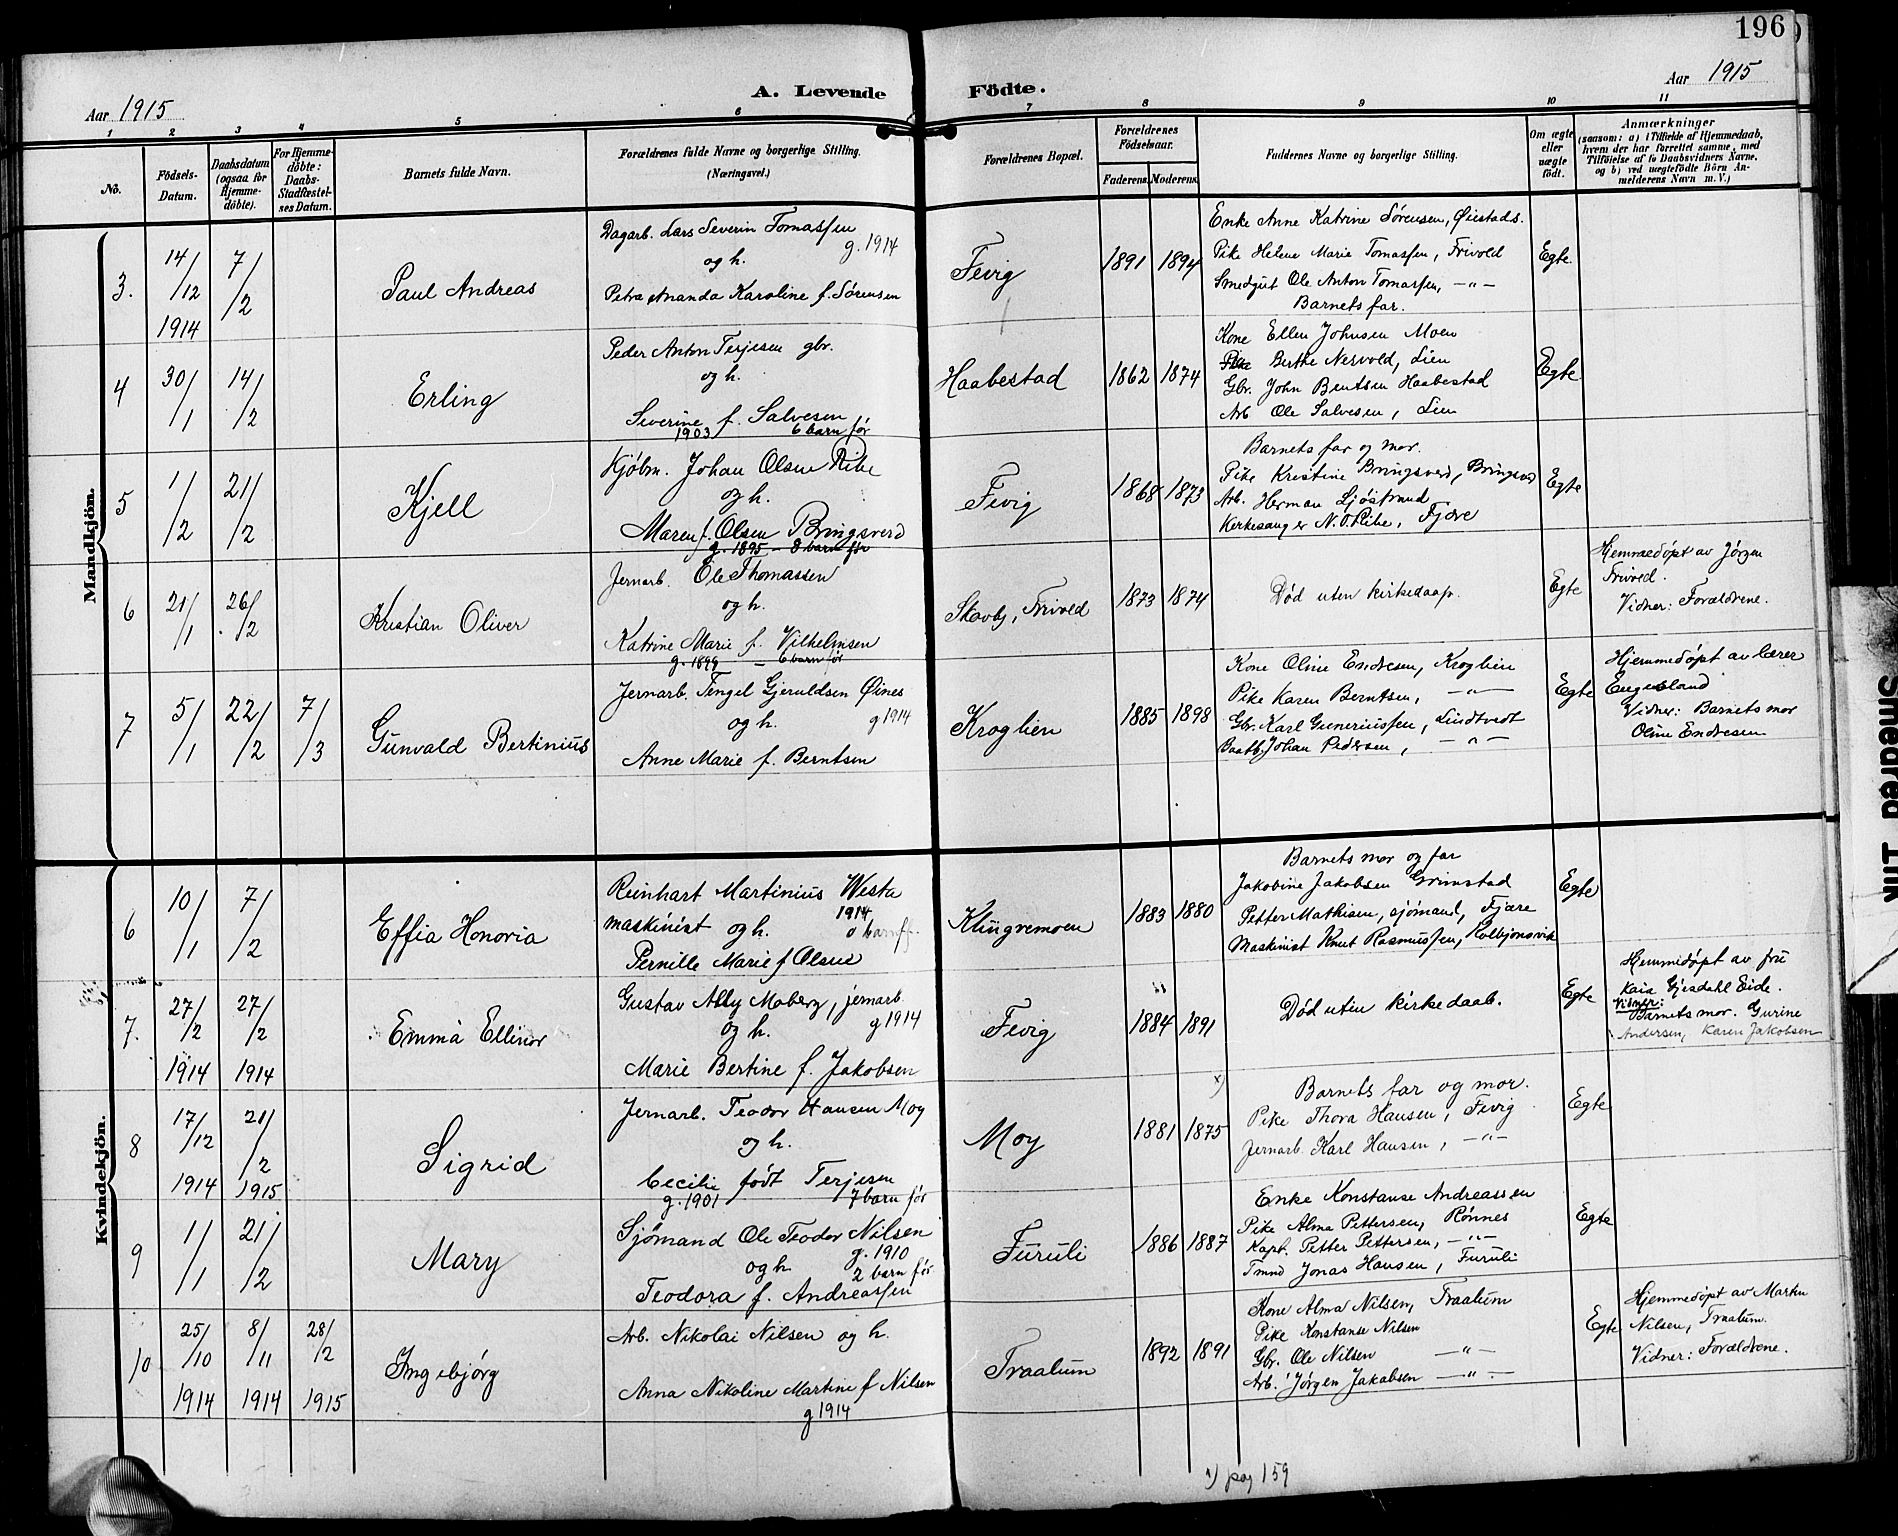 196
Aar 1915
A. Levende
Födte.
Aar 1915
1 2 3 4 5 6 7 8 9 10 11
No.
Födsels-
Datum.
Daabsdatum
(ogsaa for
Hjemme-
döbte).
For Hjemme-
döbte:
Daabs-
Stadfæstel-
ses Datum.
Barnets fulde Navn.
Forældrenes fulde Navne og borgerlige Stilling.
(Næringsvei.)
Forældrenes Bopæl.
Forældrenes
Födselsaar.
Faderens. Moderens.
Faddernes Navne og borgerlige Stilling.
Om ægte
eller
uægte
födt.
Anmærkninger
(saasom: a) i Tilfælde af Hjemmedaab,
hvem der har forrettet samme, med
Tilföielse af to Daabsvidners Navne,
og b) ved uægtefödte Börn An-
melderens Navn m. V.)
Mandkjön.
3.
14/12
1914
7/2
Paul Andreas
Dagarb. Lars Severin Tomassen
g. 1914
og h.
Petra Amanda Karoline f. Sørensen
Fevig
1891 1894
Enke Anne Katrine Sørensen, Øiestads.
Pike Helene Marie Tomassen, Frivold
Smedgut Ole Anton Tomassen, -"-
Barnets far.
Egte
4
30/1
14/2
Erling
Peder Anton Terjesen gbr.
og h.
Severine f. Salvesen
1903 6 barn før
Haabestad
1862 1874
Kone Ellen Johnsen Moen
Pike Berthe Nesvold, Lien
Gbr. John Bentsen Haabestad
Arb Ole Salvesen, Lien
Egte
5
1/2
21/2
Kjell
Kjøbm. Johan Olsen Ribe
og h.
Maren f. Olsen Bringsverd
g. 1895 - 8 barn før
Fevig
1868 1873
Barnets far og mor.
Pike Kristine Bringsverd, Bringsverd
Arb. Herman Sjöstrand
Kirkesanger N. O. Ribe, Fjære
Egte
6
21/1
26/2
Kristian Oliver
Jernarb. Ole Thomassen
og h.
Katrine Marie f. Vilhelmsen
g. 1899 - 6 barn før
Skovby, Frivold
1873 1874
Død uten kirkedaap.
Egte
Hjemmedøpt av Jørgen
Frivold.
Vidner: Forældrene.
7
5/1
22/2
7/3
Gunvald Bertinius
Jernarb. Tengel Gjeruldsen Øines
og h. g 1914
Anne Marie f. Berntsen
Kroglien
1885 1898
Kone Oline Endresen, Kroglien
Pike Karen Berntsen, -"-
Gbr. Karl Guneriussen, Lindtvedt
Baatb. Johan Pedersen, -"-
Egte
Hjemmedøpt av lærer
Eugesland
Vidner: Barnets mor
Oline Endresen
Kvindekjön.
6
10/1
7/2
Effia Honoria
Reinhart Martinius Westa
1914
maskinist og h. 0 barn f.
Pernille Marie f Olsen
Klingremoen
1883 1880
Barnets mor og far
Jakobine Jakobsen Grimstad
Petter Mathisen, sjømand, Fjære
Maskinist Knut Rasmussen, Kolbjønsvik
Egte
7.
27/2
1914
27/2
1914
Emma Ellinor
Gustav Ally Moberg, jernarb.
og h. g 1914
Marie Bertine f. Jakobsen
Fevig
1884 1891
Død uten kirkedaab.
Egte
Hjemmedøpt av fru
Kaia Gjesdahl Eide.
Vidner:
Barnets mor. Gurine
Andersen, Karen Jakobsen
8
17/12
1914
21/2
1915
Sigrid
Jernarb. Teodor Hansen Moy
og h.
Cecilie født Terjesen
g. 1901 7 barn før
Moy
1881 1875
x)
Barnets far og mor.
Pike Thora Hansen, Fevig
Jernarb. Karl Hansen, -"-
Egte
9
1/1
21/2
Mary
Sjømand Ole Teodor Nilsen
g. 1910
og h. 2 barn før
Teodora f. Andreassen
Furuli
1886 1887
Enke Konstanse Andreassen
Pike Alma Pettersen, Rønnes
Kapt. Petter Pettersen, -"-
Tmnd Jonas Hansen, Furuli
Egte
10
25/10
1914
8/11
1914
28/2
1915
Ingebjørg
Arb. Nikolai Nilsen og h.
Anna Nikoline Martine f Nilsen
g 1914
Traalum
1892 1891
Kone Alma Nilsen, Traalum
Pike Konstanse Nilsen
Gbr. Ole Nilsen -"-
Arb. Jørgen Jakobsen -"-
Egte
Hjemmedøpt av Martin
Nilsen, Traalum.
Vidner: Forældrene.
x) pag 159